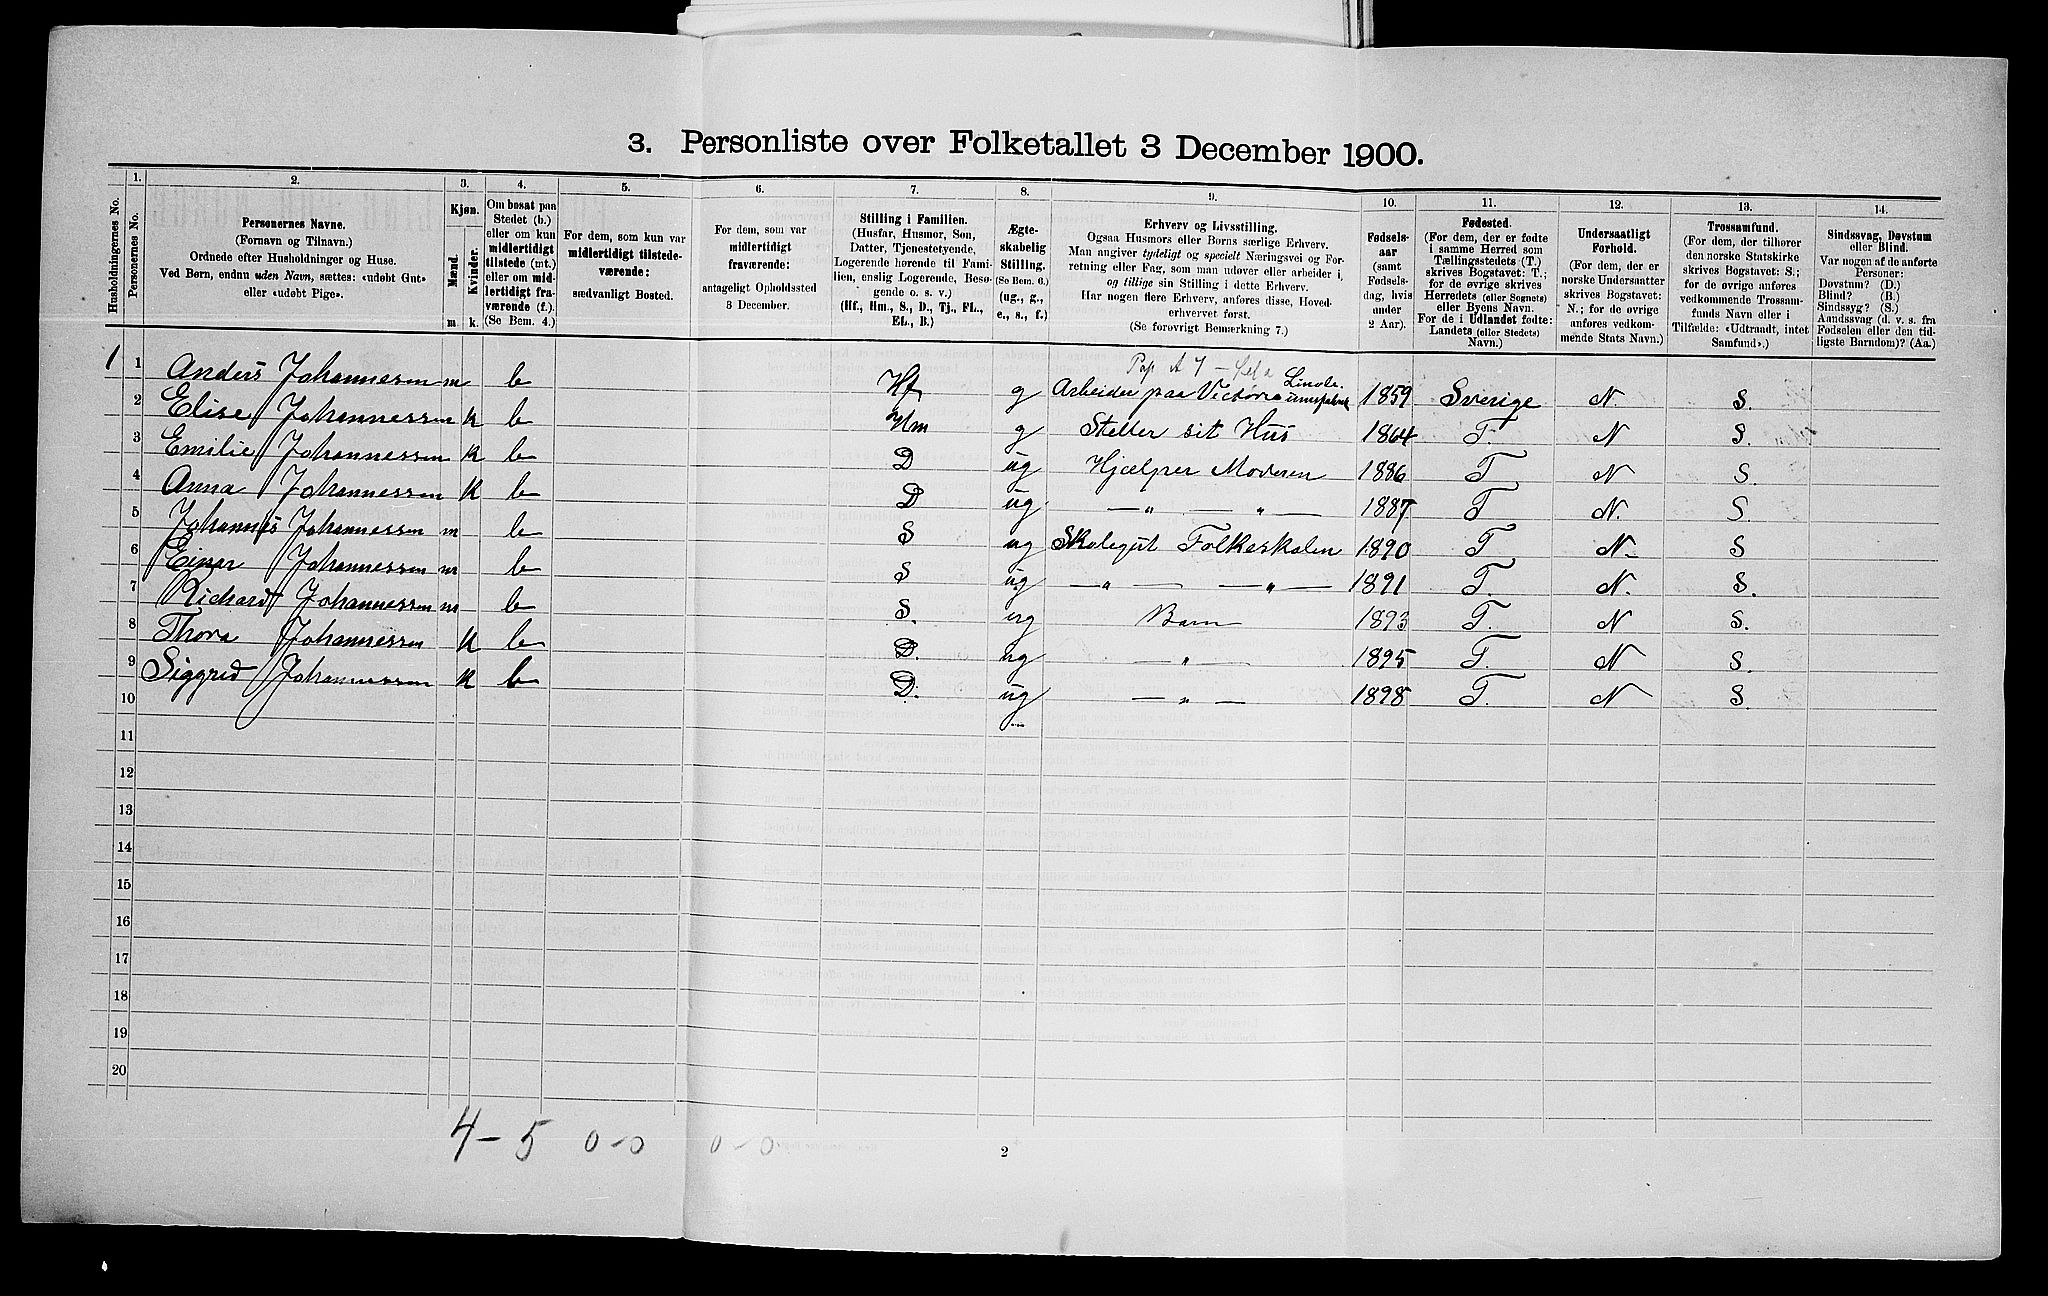 3. Personliste over Folketallet 3 December 1900.
Husholdningernes No.
1.
Personernes No.
2.
Personernes Navne.
(Fornavn og Tilnavn.)
Ordnede efter Husholdninger og Huse.
Ved Børn, endnu uden Navn, sættes: «udøbt Gut»
eller «udøbt Pige».
3.
Kjøn.
Mænd.
Kvinder.
m.
k.
4.
Om bosat paa
Stedet (b.)
eller om kun
midlertidigt
tilstede (mt.)
eller om mid-
lertidigt fra-
værende (f.).
(Se Bem. 4.)
5.
For dem, som kun var
midlertidigt tilstede-
værende:
sædvanligt Bosted.
6.
For dem, som var
midlertidigt
fraværende:
antageligt Opholdssted
3 December.
7.
Stilling i Familien.
(Husfar, Husmor, Søn,
Datter, Tjenestetyende,
Logerende hørende til Fami-
lien, enslig Logerende, Besø-
gende o. s. v.)
(Hf., Hm., S., D., Tj., FL.,
EL., B.)
8.
Ægte-
skabelig
Stilling.
(Se Bem. 6.)
(ug., g.,
e., s., f.)
9.
Erhverv og Livsstilling.
Ogsaa Husmors eller Børns særlige Erhverv.
Man angiver tydeligt og specielt Næringsvei og For-
retning eller Fag, som man udøver eller arbeider i,
og tillige sin Stilling i dette Erhverv.
Har nogen flere Erhverv, anføres disse, Hoved-
erhvervet først.
(Se forøvrigt Bemerkning 7.)
10.
Fødsels-
aar
(samt
Fødsels-
dag, hvis
under
2 Aar).
11.
Fødested.
(For dem, der er fødte
i samme Herred som
Tællingsstedets (T.)
skrives Bogstavet: T.;
for de øvrige skrives
Herredets (eller Sognets)
eller Byens Navn.
For de i Udlandet fødte:
Landets (eller Stedets)
Navn.)
12.
Undersaatligt
Forhold.
(For dem, der er
norske Undersaatter
skrives Bogstavet:
N.; for de øvrige
anføres vedkom-
mende Stats Navn.)
13.
Trossamfund.
(For dem, der tilhører
den norske Statskirke
skrives Bogstavet: S.;
for de øvrige anføres
vedkommende Trossam-
funds Navn eller i
Tilfælde: «Udtraadt, intet
Samfund».)
14.
Sindssvag, Døvstum
eller Blind.
Var nogen af de anførte
Personer:
Døvstum? (D.)
Blind? (B.)
Sindssyg? (S.)
Aandssvag (d. v. s. fra
Fødselen eller den tid-
ligste Barndom)? (Aa.)
1 1 Anders Johannesen m b Hf g Arbeider paa Victoria Linole- umsfabrik 1859 Sverige N. S.
2 Elise Johannessen k b Hm g Steller sit Hus 1864 T. N S.
3 Emilie Johannessen k b D ug Hjælper Moderen 1886 T N S.
4 Anna Johannessen k b D ug — " — " — 1887 T N. S.
5 Johannes Johannessen m b S ug Skolegut Folkeskolen 1890 T. N. S
6 Einar Johannessen m b S ug — " — — " — 1891 T. N. S.
7 Richard Johannessen m b S. ug Barn 1893 T. N S.
8 Thora Johannessen k b D. ug " — 1895 T. N S.
9 Siggrid Johannessen k b D. ug — " — 1898 T. N S.
10
11
12
13
14
15
16
17
18
19
20
4 - 5 0 - 0 0 - 0
2